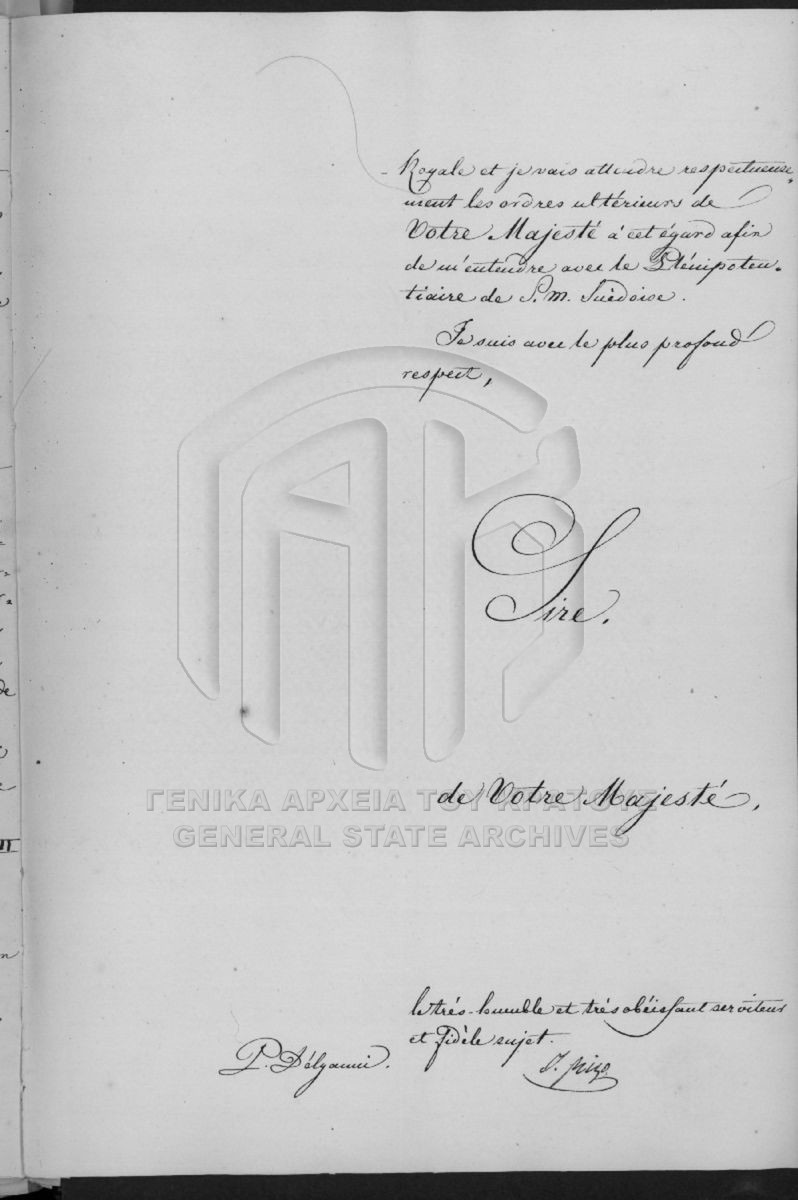 Royale et je vais attendre respectueuse-
ment les ordres ultérieurs de
Votre Majesté à cet égard afin
de m'entendre avec le Plénipoten-
tiaire de S. M. Suèdoise.
Je suis avec le plus profond
respect,
Sire.
de Votre Majesté,
ΓΕΝΙΚΑ ΑΡΧΕΙΑ ΤΟΥ ΚΡΑΤΟΥΣ
GENERAL STATE ARCHIVES
le trés-humble et trés obéissant serviteur
et fidèle sujet.
P. Délyanni.